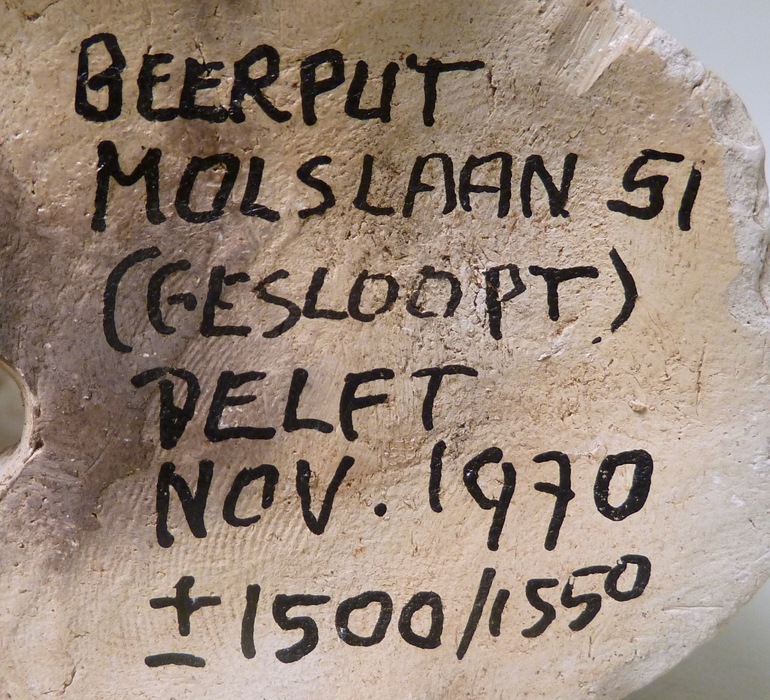 BEERPUT
MOLSLAAN 51
(GESLOOPT)
DELFT
NOV. 1970
± 1500/1550